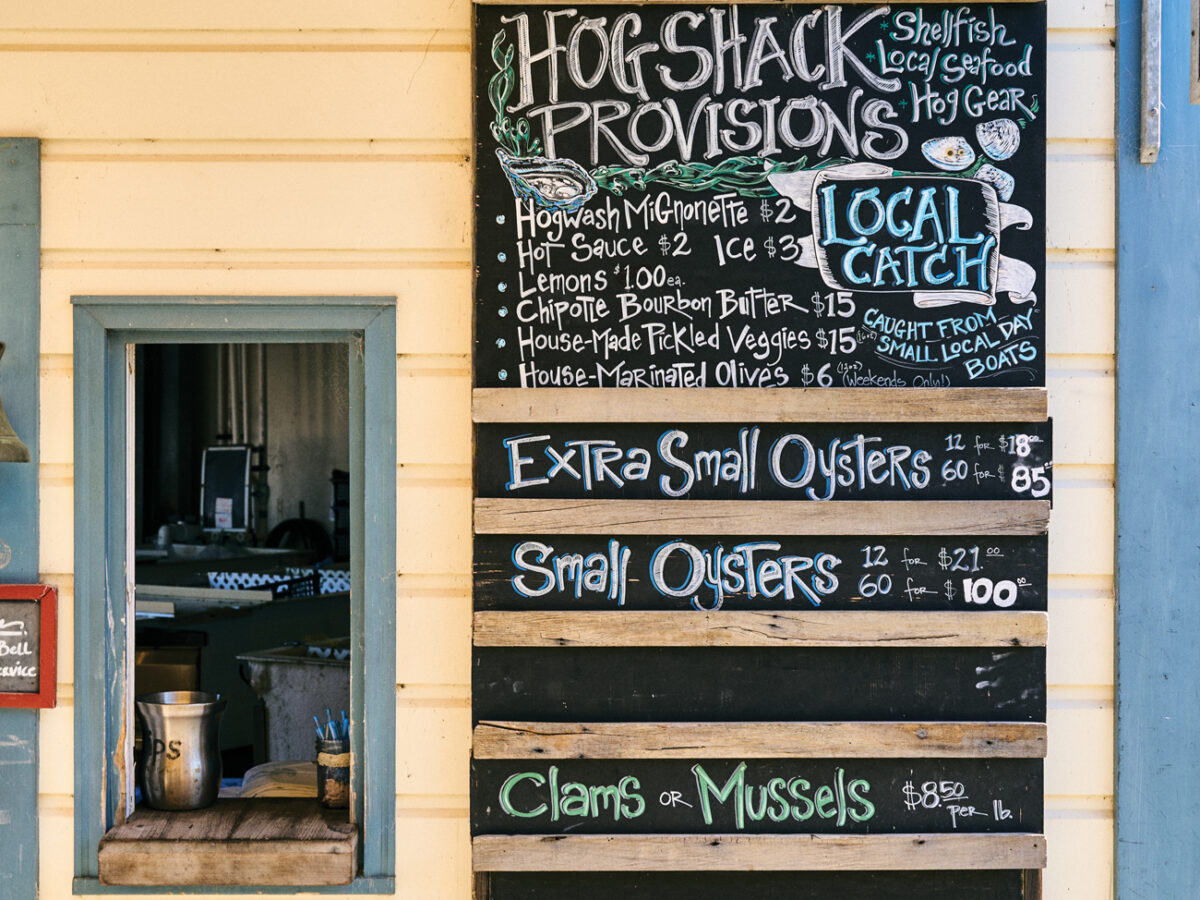 HOG SHACK
PROVISIONS
Shellfish
Local Seafood
Hog Gear
Hogwash Mignonette $2
Hot Sauce $2 Ice $3
Lemons $1.00 ea.
Chipotle Bourbon Butter $15
House-Made Pickled Veggies $15 (16oz)
House-Marinated Olives $6 (12oz) (Weekends Only!)
LOCAL
CATCH
CAUGHT FROM
SMALL LOCAL DAY
BOATS
Extra Small Oysters 12 for $18.00
60 for $85.00
Small Oysters 12 for $21.00
60 for $100.00
Clams or Mussels $8.50
per lb.
Bell
PS